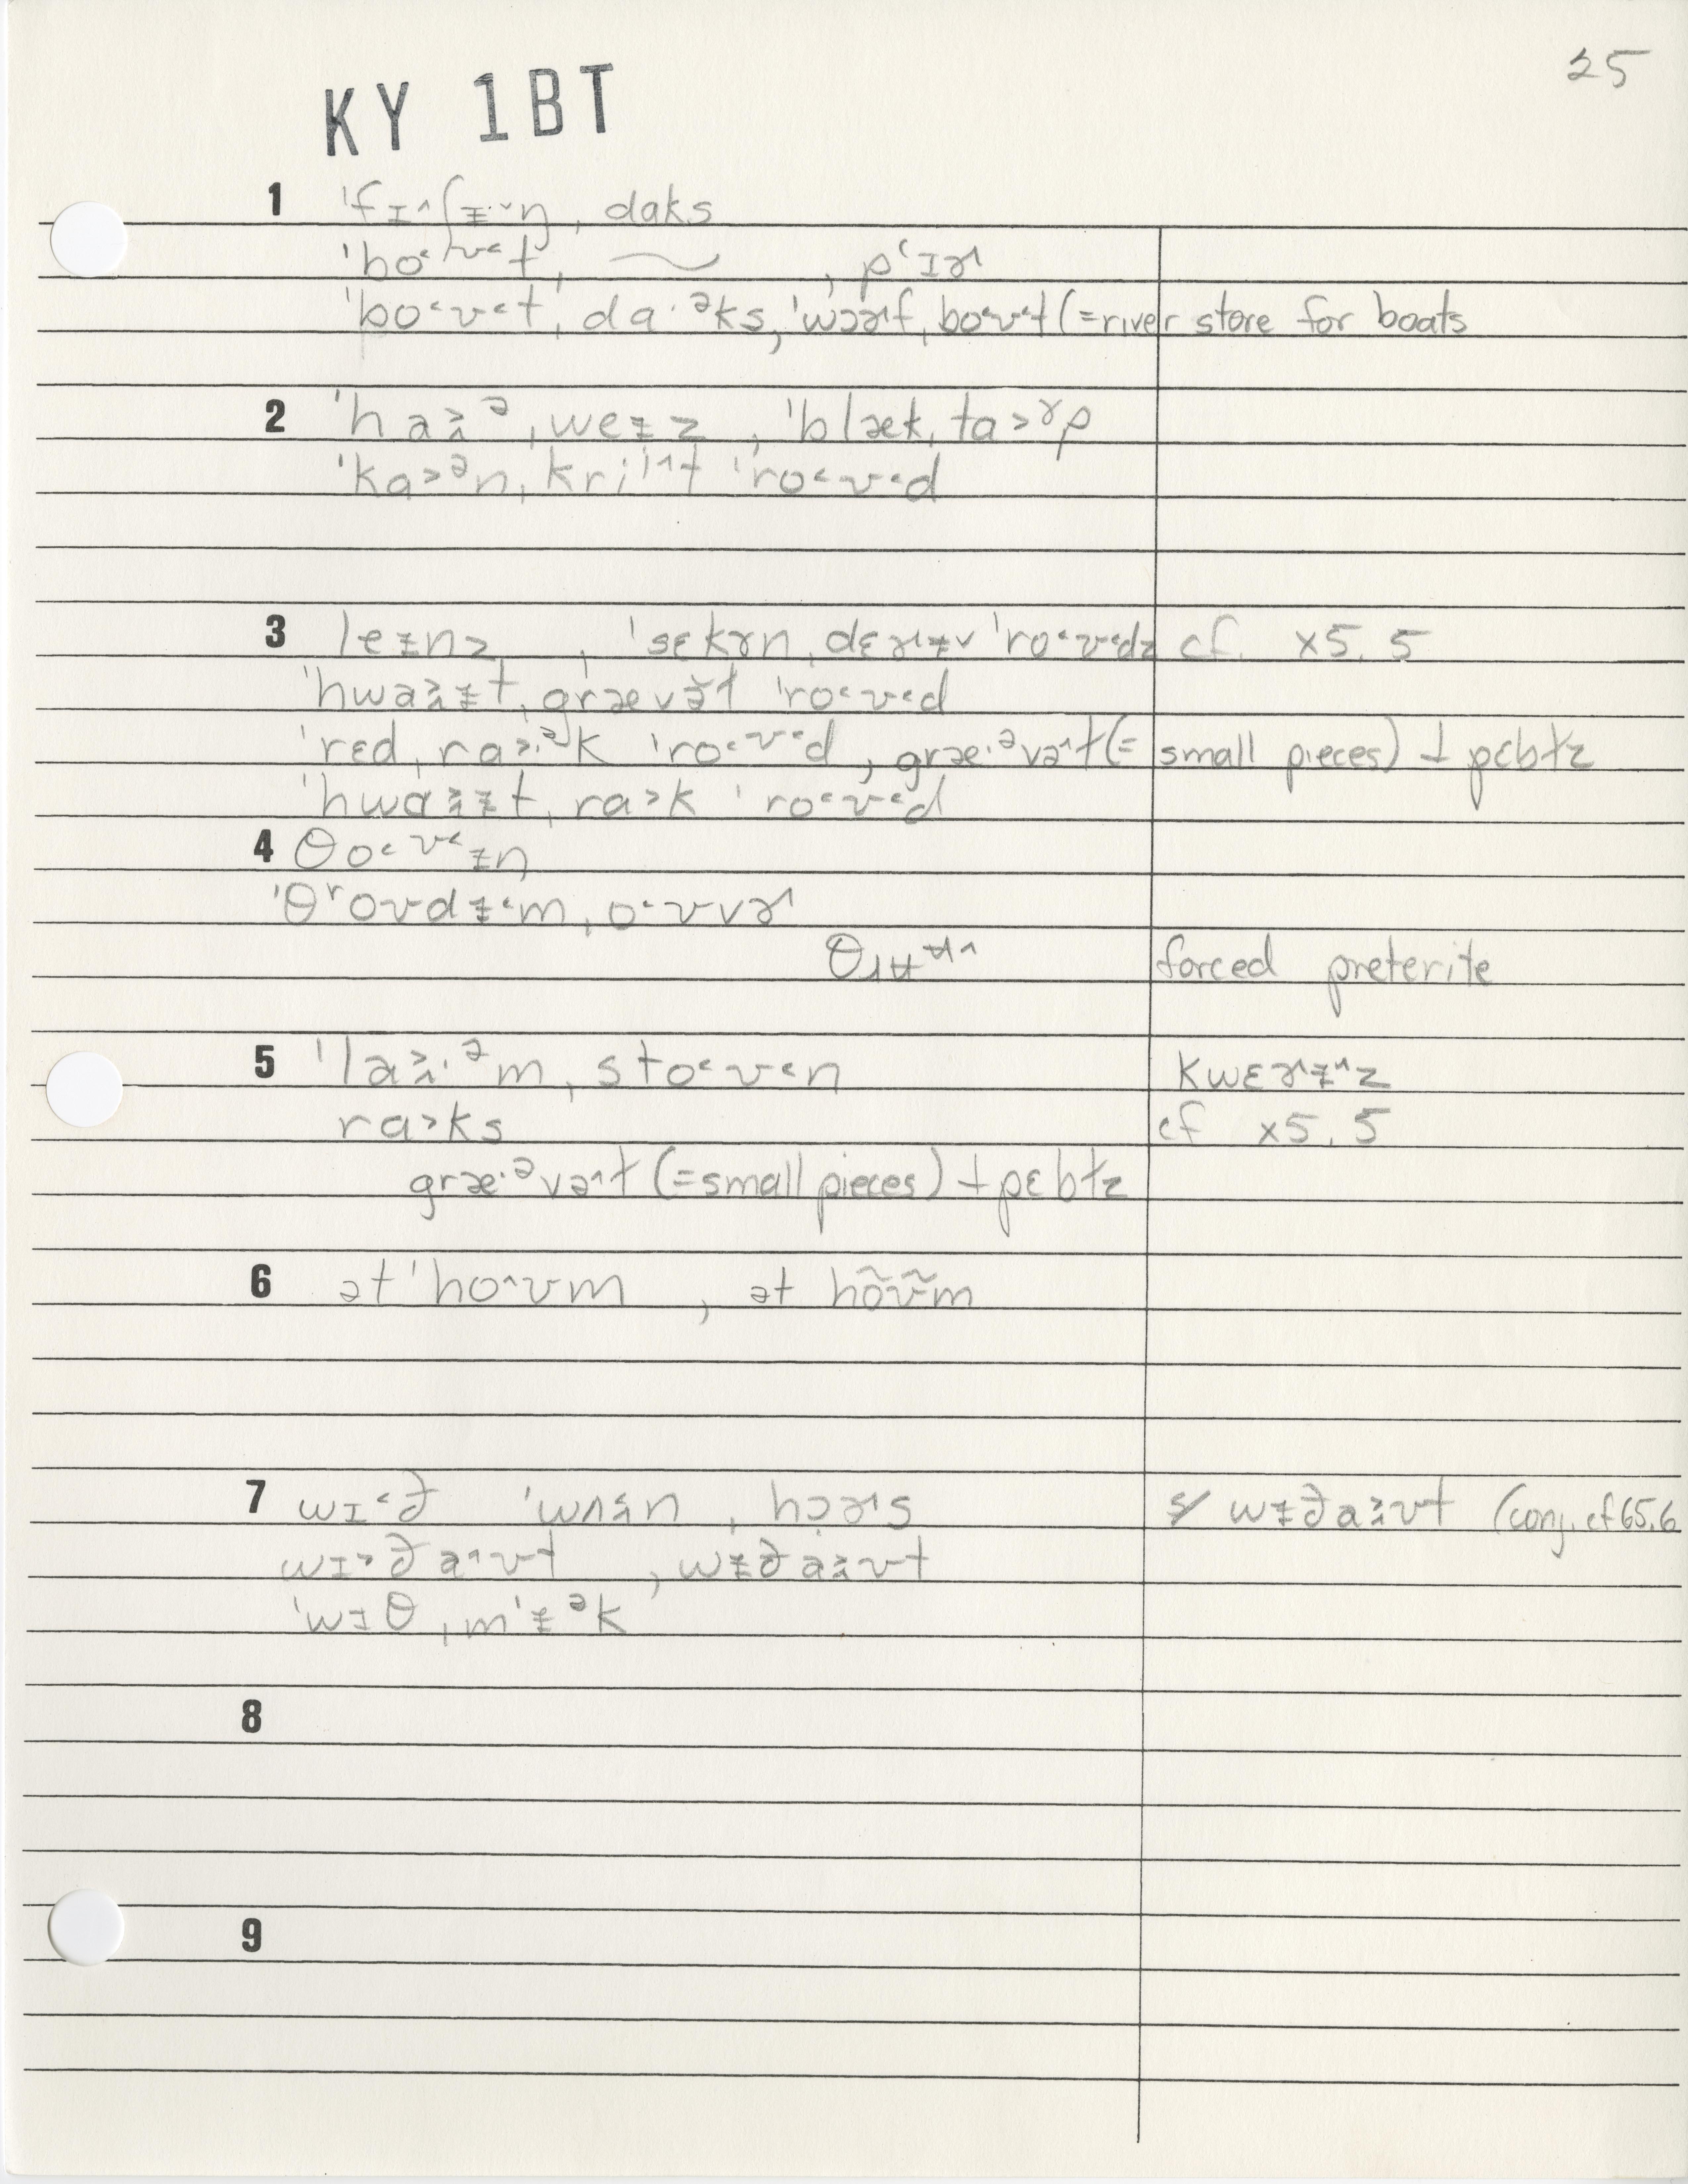 25
KY 1BT
1 ˈfɪ˄ʃɨ·˅ŋ, daks
ˈbo˂ʊ˂t, ⁓, pʻɪɚ
ˈbo˂ʊ˂t, da·ᵊks, ˈwɔɚf, bo˂ʊt (=river store for boats
2 ˈhaɨᵊ, weɨz, ˈblæk, ta˃ɚp
ˈka˃ᵊn, krit ˈro˂ʊ˂d
3 leɨnz, ˈsɛkɚn, dɛɚɨv ˈro˂ʊ˂dz cf. x5.5
ˈhwaɨt, grævəɫ ˈro˂ʊ˂d
ˈrɛd, ra˃·ᵊk ˈro˂ʊ˂d, græ·ᵊvə˄ɫ (= small pieces) ⊥ pɛbɫz
ˈhwaɨt, ra˃k ˈro˂ʊ˂d
4 θo˂ʊ˂ɨŋ
ˈθʳoʊdɨ˂m, o˂ʊvɚ
forced preterite
5 ˈla·ᵊm, sto˂ʊ˂n kwɛɚɨ˄z
ra˃ks cf x5.5
græ·ᵊvə˄ɫ (=small pieces) ⊥ pɛbɫz
6 ət ˈho˄ʊm, ət hõʊ̃m
7 wɪ˂ð ˈwʌn, hɔɚs wɨðaʊt (conj. cf 65.6
wɪ˃ða˄ʊt, wɨðaʊt
ˈwɪθ, mˈɨᵊk
8
9